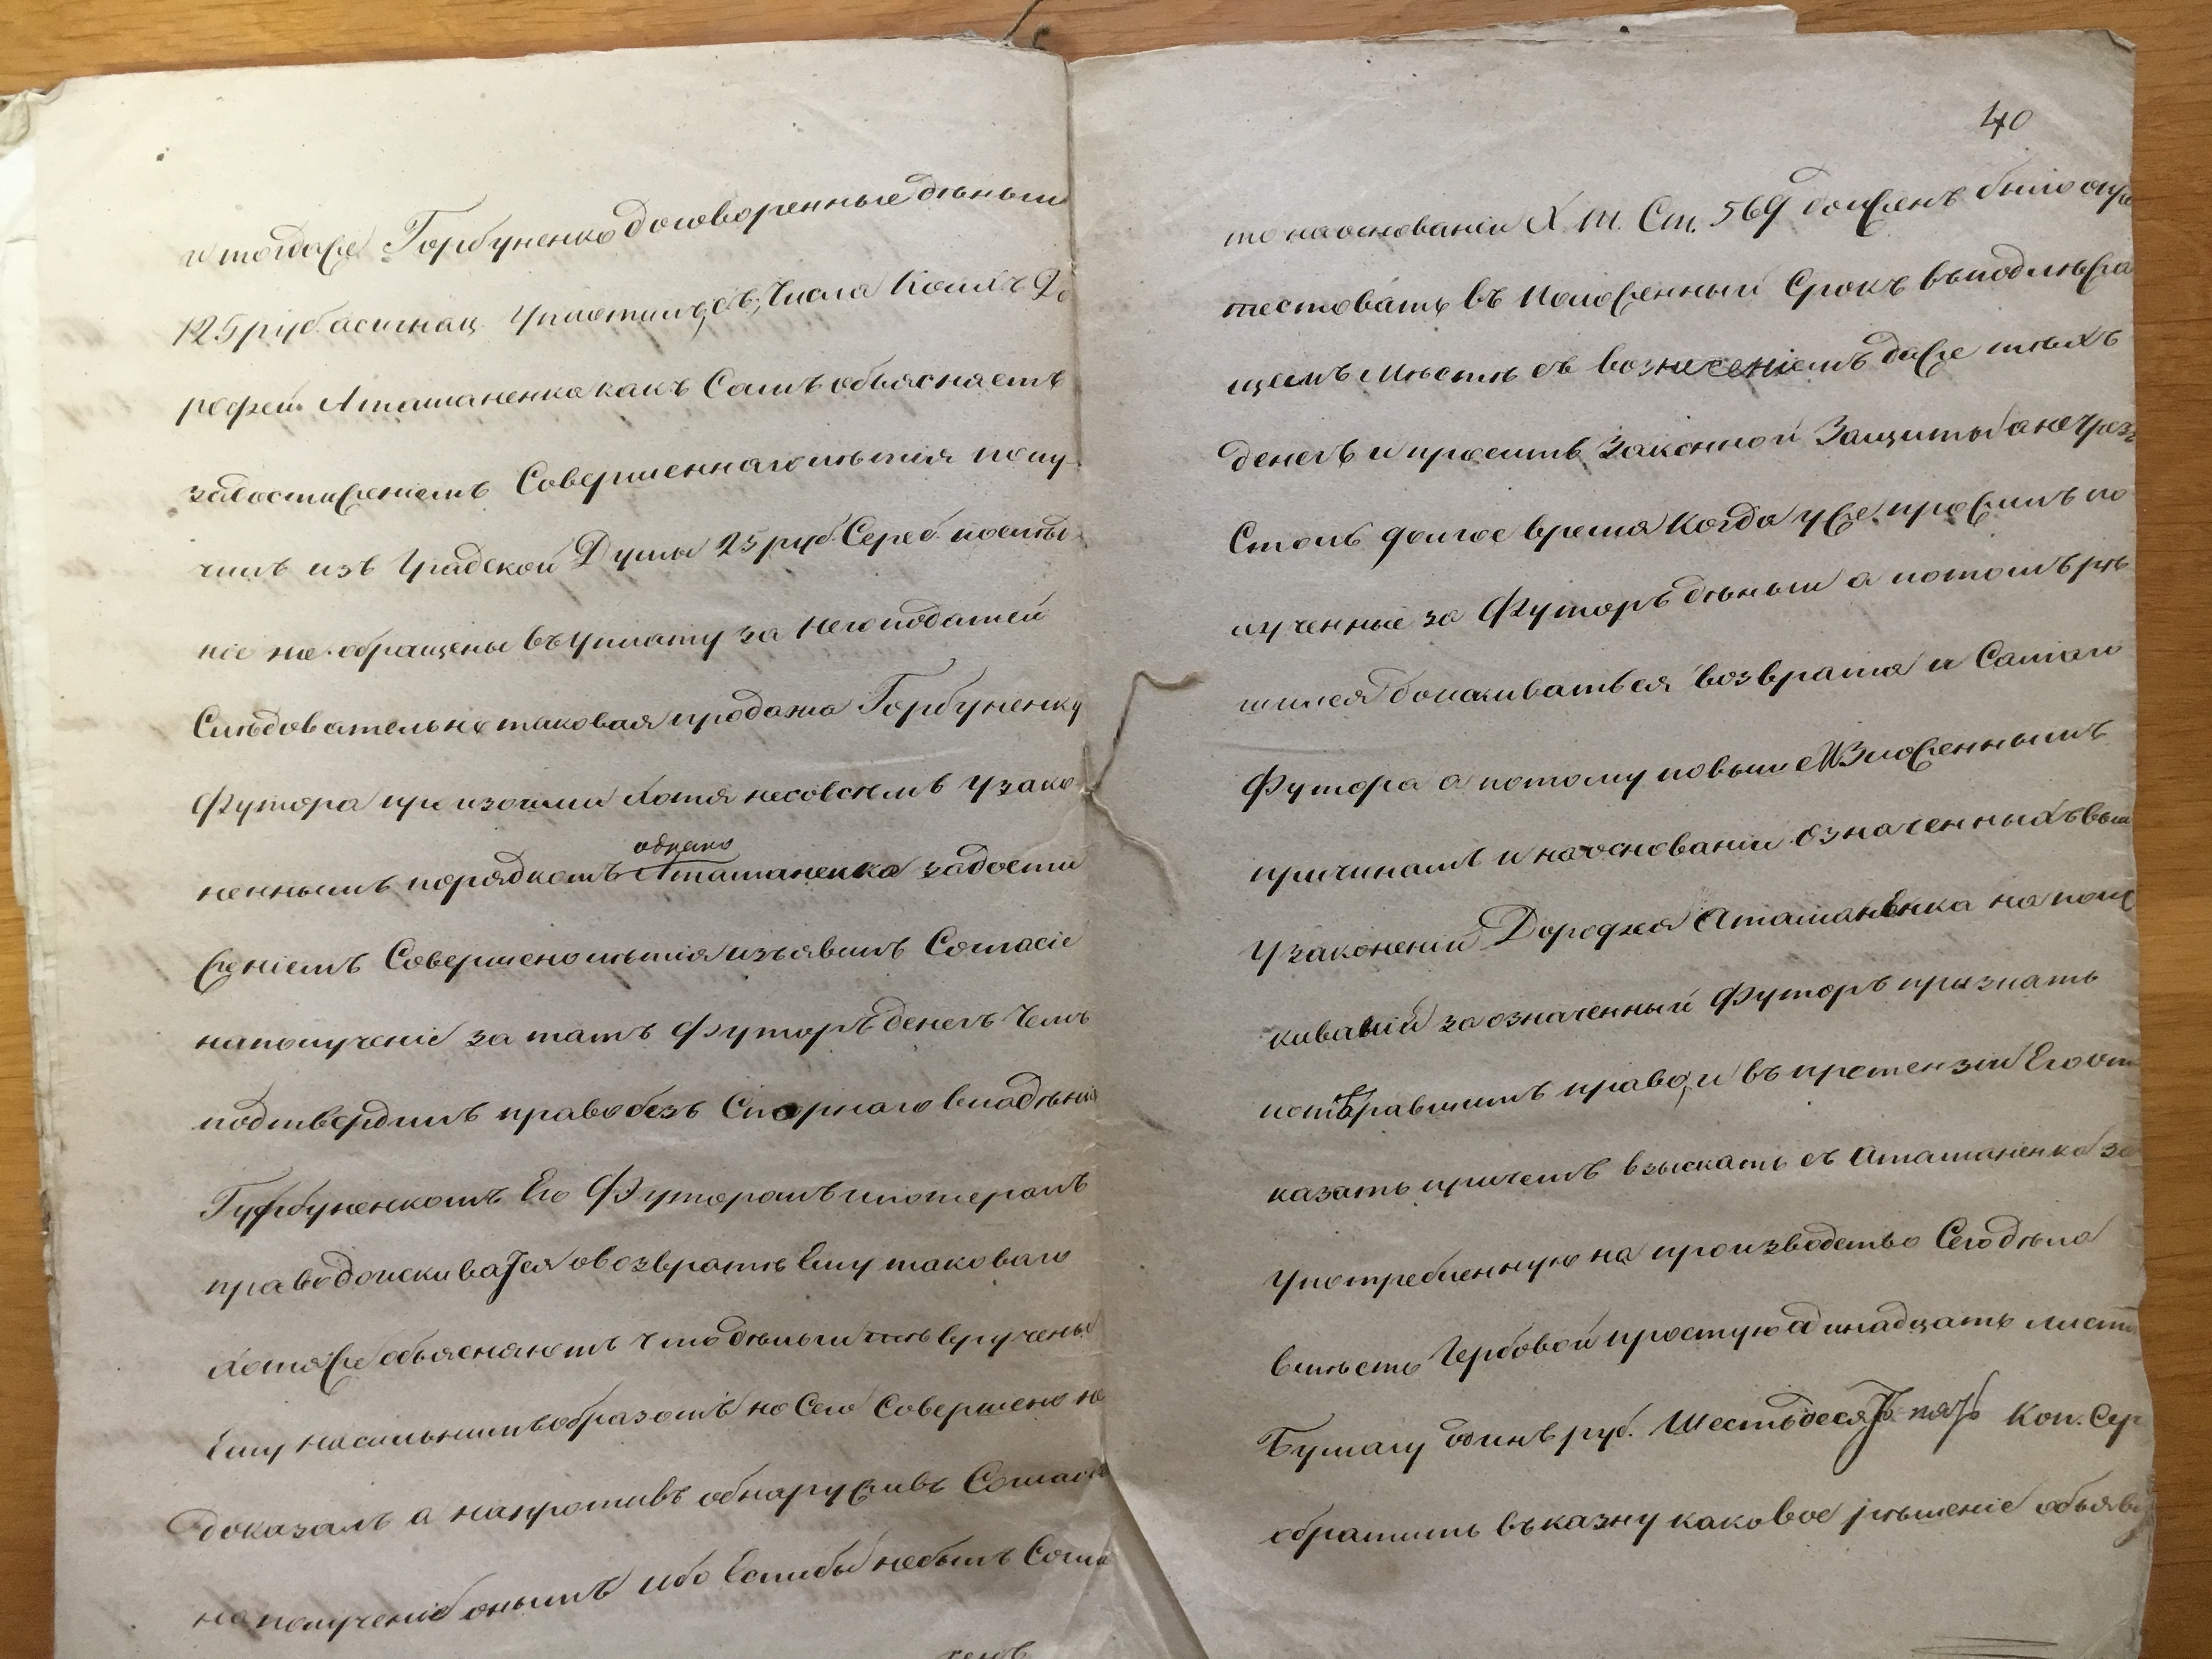 и тогда же Горбуненко договоренные деньги
125 руб. асигнац. уплотилъ, съ, Числа Коихъ До
рофей Аташаненко какъ Самъ объясняетъ
задостиженіемъ Совершеннаголѣтія полу
чилъ изъ Градской Думы 25 руб. Сереб. послѣд
ніе же обращены въ уплату за него податей
Слѣдовательно таковая продажа Горбуненку
Футора произошла хотя несовсѣмъ узако
неннымъ порядкомъ однако Аташаненко задости
женіемъ Совершенолѣтія изъявилъ Согласіе
наполученіе за татъ Футоръ денегъ Чемъ
подтвердилъ право безъ Спорнаго владѣнія
Гурбуненкомъ Его Футоромъ и потерялъ
право доискиватся овозвратѣ Ему таковаго
хотя же объясняетъ что деньги вручены
Ему насильнымъ образомъ но Сего Совершено не
доказалъ а напротивъ обнаруживъ Согласіе
на полученіе онымъ ибо Еслибы небылъ Согла
сенъ
40
то на основаніи X т. Ст. 569 долженъ былъ опро
тестовать въ Положенный Срокъ въ подлежа
щемъ мѣстѣ съ вознесеніемъ даже тѣхъ
денегъ и просить Законной Защиты а не Чрезъ
Столь долгое время Когда уже прожилъ по
лученные за Футоръ деньги а потомъ рѣ
шился домагиваться возврата и Самаго
Футора а потому повыше Изложеннымъ
причинамъ и на основаніи означенныхъ выш
Узаконеній Дорофея Аташаненка на поис
киваній за означенный Футоръ признать
потерявшимъ право, и въ претензіи Его от
казать причемъ взыскать съ Аташаненко за
употребленную на производство Сего дѣла
вмѣсто Гербовой простую одинадцать листовъ
Бумагу одинъ руб. Шестьдесятъ пять Коп. Сер
обратить въ казну каковое рѣшеніе объяви